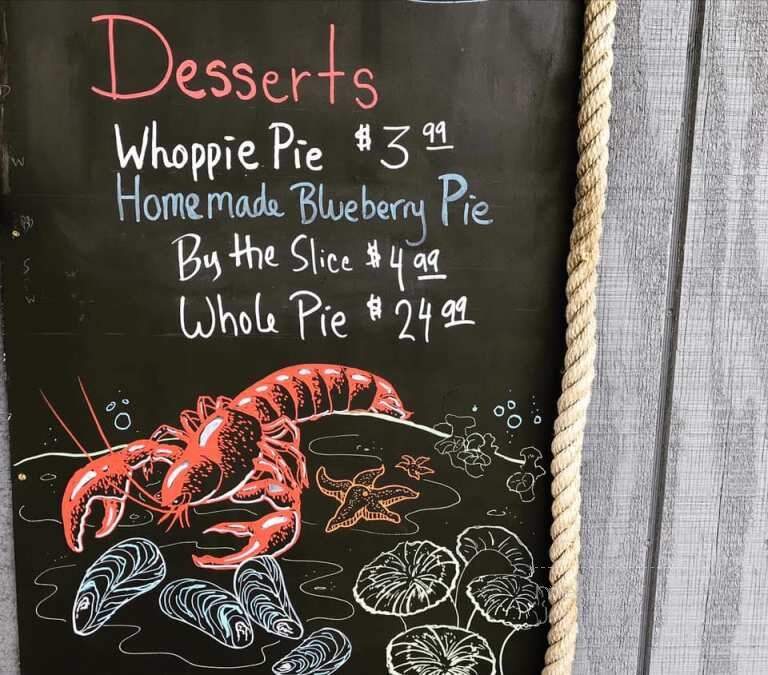 Desserts
Whoppie Pie $3 99
Homemade Blueberry Pie
By the Slice $4 99
Whole Pie $24 99